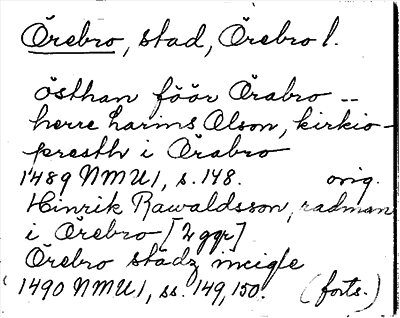 Örebro, stad, Örebro l.
östhan föör Örabro --
herre Larims Olson, kirkio-
presth i Örabro
1489 NMU1, s. 148. orig.
Hinrik Rawaldsson, radman
i Örebro [2 ggr]
Örebro stadz incigle
1490 NMU1, ss. 149, 150. (forts.)